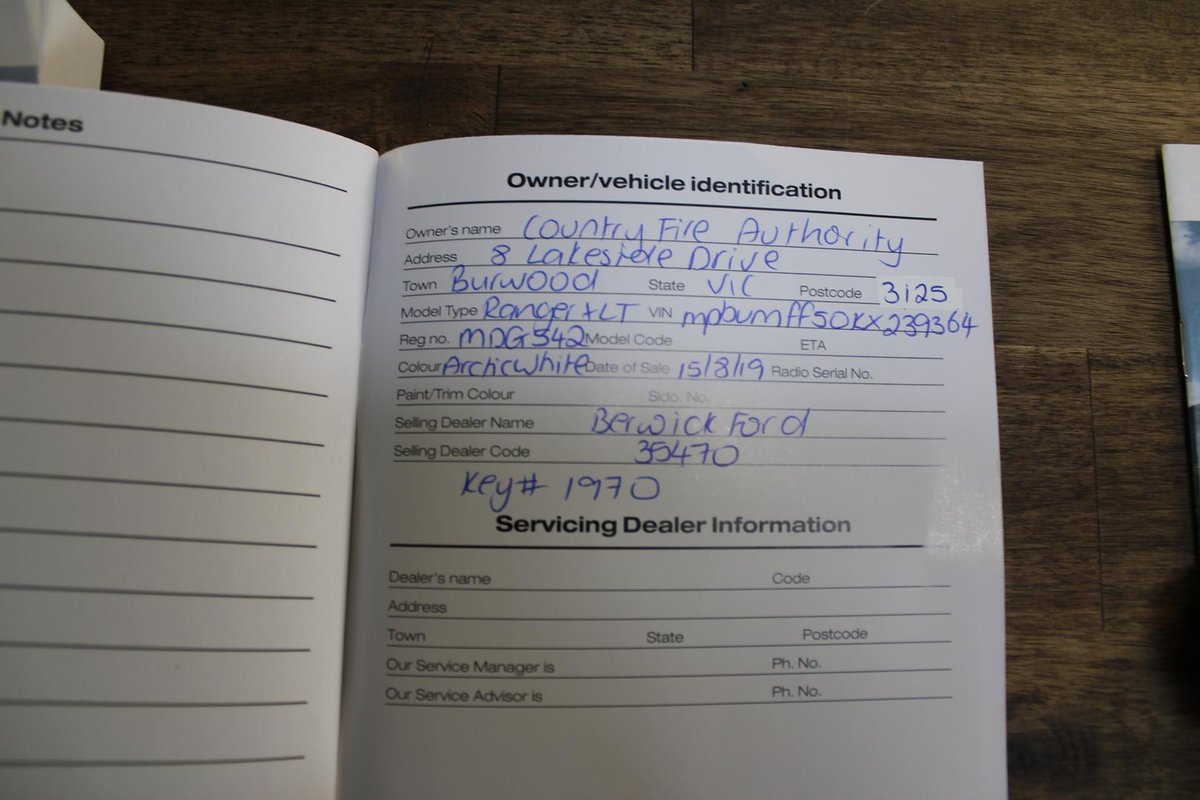 Notes
Owner/vehicle identification
Owner's name Country Fire Authority
Address 8 Lakeside Drive
Town Burwood State VIC Postcode 3125
Model Type Ranger XLT VIN mpbumff50kx239364
Reg no. MDG542 Model Code ETA
Colour Arctic White Date of Sale 15/8/19 Radio Serial No.
Paint/Trim Colour Sido. No.
Selling Dealer Name Berwick Ford
Selling Dealer Code 35470
Key# 1970
Servicing Dealer Information
Dealer's name Code
Address
Town State Postcode
Our Service Manager is Ph. No.
Our Service Advisor is Ph. No.